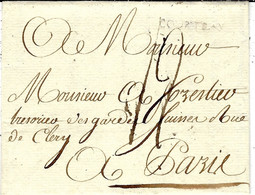 COURTRAY
A Monsieur
Monsieur A Forestier
tresorier des gardes Suisses Rue
de Clery
A Paris